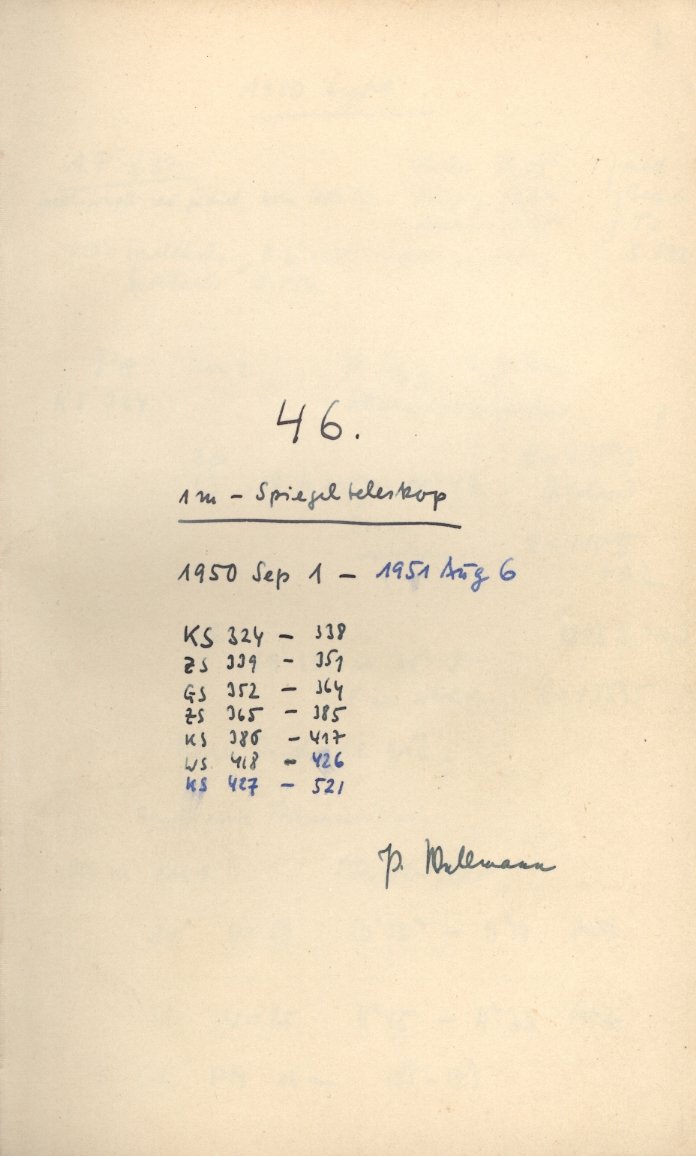 46.
1m - Spiegelteleskop
1950 Sep 1 - 1951 Aug 6
KS 324 - 338
ZS 339 - 351
GS 352 - 364
ZS 365 - 385
KS 386 - 417
WS 418 - 426
KS 427 - 521
P. Wellmann